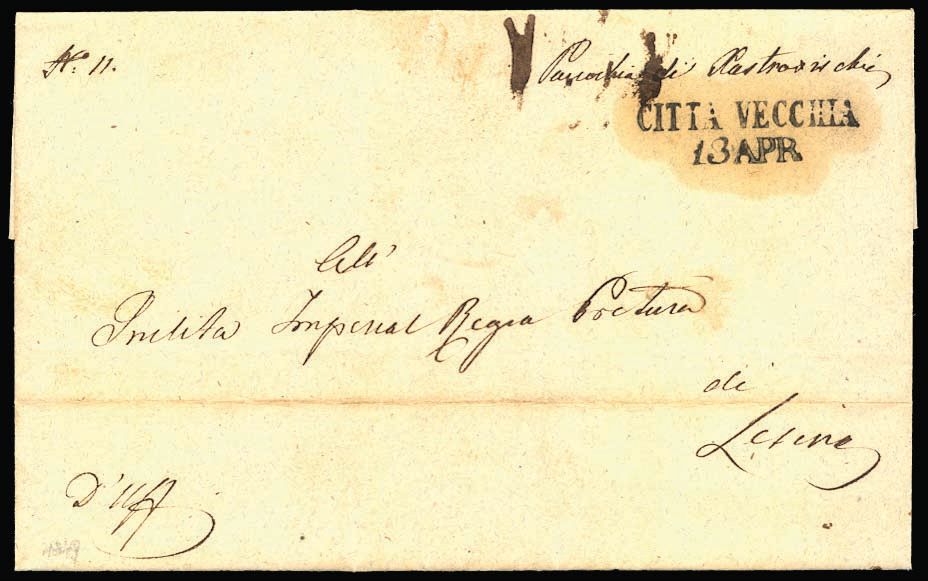 N.º 11.
Parochia di Rastrovischie
CITTA VECCHIA
13 APR
All'
Inclita Imperial Regia Pretura
di
Lesina
D'Uff